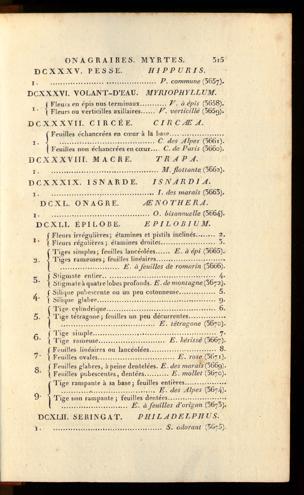 ONAGRAIRES. MYRTES. 315
DCXXXV. PESSE. HIPPURIS.
1. . . . . . P. commune (3657).
DCXXXVI. VOLANT-D'EAU. MYRIOPHYLLUM.
1. Fleurs en épis nus terminaux.......... V. à épis (3658).
Fleurs ou verticilles axillaires...... V. verticillé (3659).
DCXXXVII. CIRCÉE. CIRCÆA.
1. Feuilles échancrées en cœur à la base....................
............ C. des Alpes (3661).
Feuilles non échancrées en cœur... C. de Paris (3660).
DCXXXVIII. MACRE. TRAPA.
1. . . . . . M. flottante (3662).
DCXXXIX. ISNARDE. ISNARDIA.
1. . . . . . I. des marais (3663).
DCXL. ONAGRE. ÆNOTHERA.
1. . . . . . O. bisannuelle (3664).
DCXLI. ÉPILOBE. EPILOBIUM.
1. Fleurs irrégulières; étamines et pistils inclinés........ 2.
Fleurs régulières; étamines droites............ 3.
2. Tiges simples; feuilles lancéolées...... E. à épi (3665).
Tiges rameuses; feuilles linéaires....................
............ E. à feuilles de romarin (3666).
3. Stigmate entier.................... 4.
Stigmate à quatre lobes profonds. E. de montagne (3672).
4. Silique pubescente ou un peu cotonneuse........ 5.
Silique glabre.................... 9.
5. Tige cylindrique.................... 6.
Tige tétragone; feuilles un peu décurrentes............
............ E. tétragone (3670).
6. Tige simple.................... 7.
Tige rameuse............ E. hérissé (3667).
7. Feuilles linéaires ou lancéolées............ 8.
Feuilles ovales............ E. rose (3671).
8. Feuilles glabres, à peine dentelées. E. des marais (3669).
Feuilles pubescentes, dentées........ E. mollet (3670).
9. Tige rampante à sa base; feuilles entières............
............ E. des Alpes (3674).
Tige non rampante; feuilles dentées............
............ E. à feuilles d'origan (3673).
DCXLII. SERINGAT. PHILADELPHUS.
1. . . . . . S. odorant (3675).